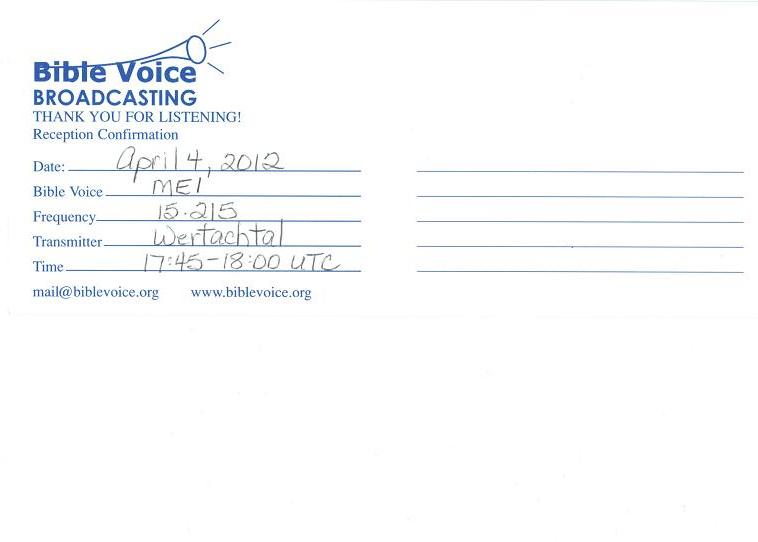 Bible Voice
BROADCASTING
THANK YOU FOR LISTENING!
Reception Confirmation
Date: April 4, 2012
Bible Voice MEI
Frequency 15.215
Transmitter Wertachtal
Time 17:45-18:00 UTC
mail@biblevoice.org www.biblevoice.org